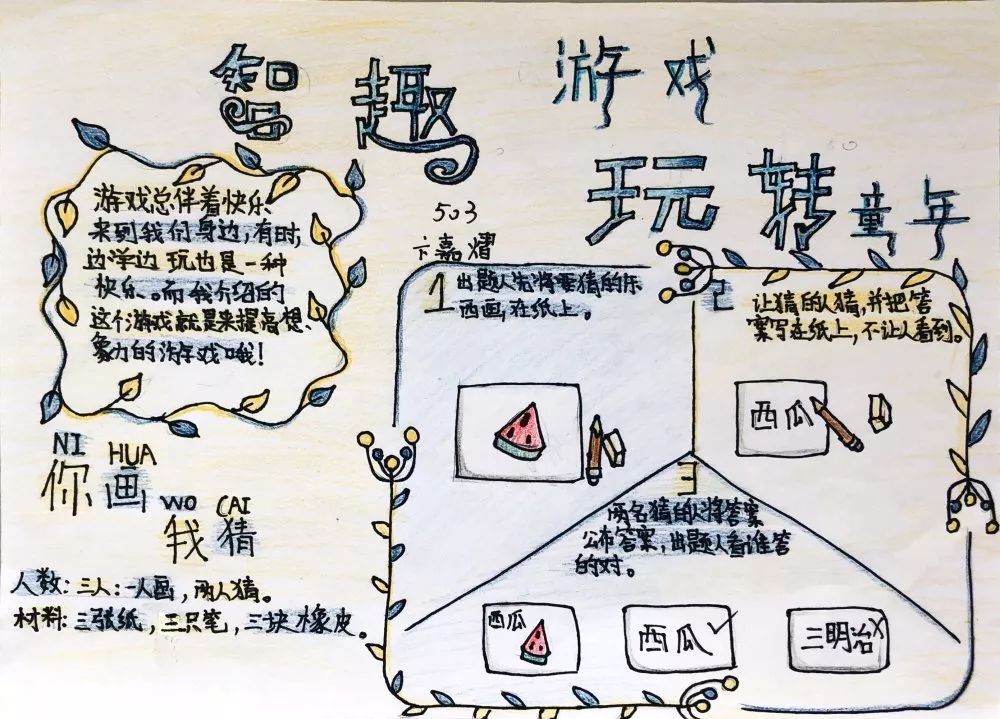 智趣 游戏
玩转童年
503
卞嘉熠
游戏总伴着快乐、
来到我们身边,有时,
边学边 玩也是一种
快乐。而我介绍的
这个游戏就是来提高想、
象力的游戏哦!
NI HUA
你画
WO CAI
我猜
人数:三人:一人画,两人猜。
材料:三张纸,三只笔,三块橡皮。
1 出题人先将要猜的东
西画,在纸上。
2 让猜的人猜,并把答
案写在纸上,不让人看到。
西瓜
3
两名猜的人将答案
公布答案,出题人看谁答
的对。
西瓜
西瓜✓
三明治X